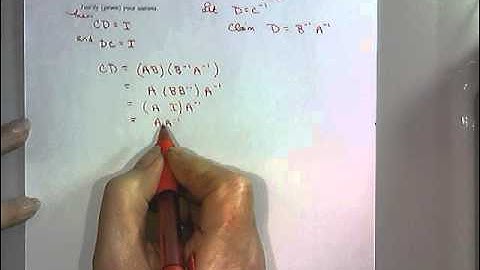 Justify (prove) your answer.
Let D = C⁻¹
then
CD = I
Claim D = B⁻¹A⁻¹
and DC = I
CD = (AB)(B⁻¹A⁻¹)
= A(BB⁻¹)A⁻¹
= (A I)A⁻¹
= AA⁻¹